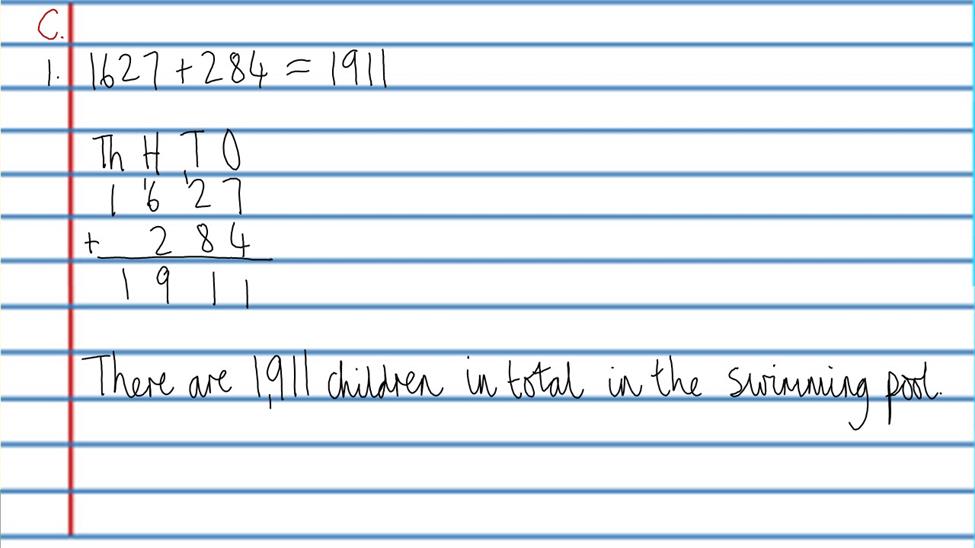 C.
1. 1627 + 284 = 1911
Th H T O
1 ¹6 ¹27
+ 284
1911
There are 1,911 children in total in the swimming pool.